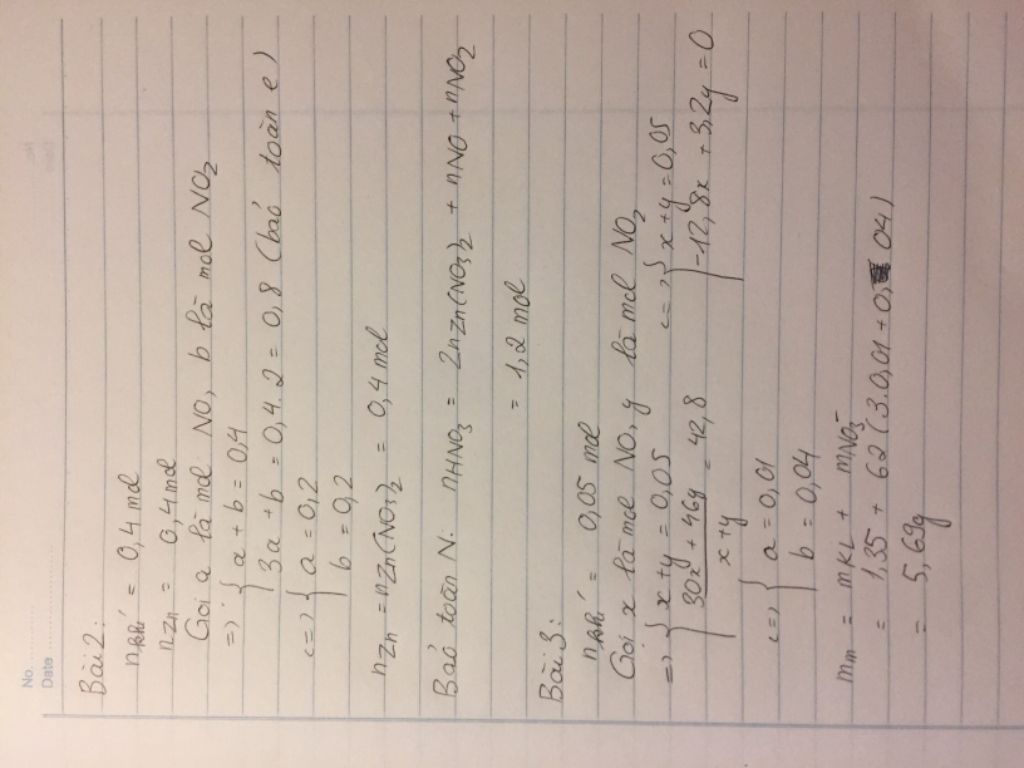 No.
Date
Bài 2:
n khí = 0,4 mol
nZn = 0,4 mol
Gọi a là mol NO, b là mol NO₂
=> { a + b = 0,4
3a + b = 0,4.2 = 0,8 (bảo toàn e)
<=> { a = 0,2
b = 0,2
nZn = nZn(NO₃)₂ = 0,4 mol
Bảo toàn N: nHNO₃ = 2nZn(NO₃)₂ + nNO + nNO₂
= 1,2 mol
Bài 3:
n khí = 0,05 mol
Gọi x là mol NO, y là mol NO₂
=> { x + y = 0,05 <=> { x + y = 0,05
(30x + 46y)/(x+y) = 42,8 -12,8x + 3,2y = 0
<=> { a = 0,01
b = 0,04
mm = mKL + mNO₃⁻
= 1,35 + 62(3.0,01 + 0,04)
= 5,69g